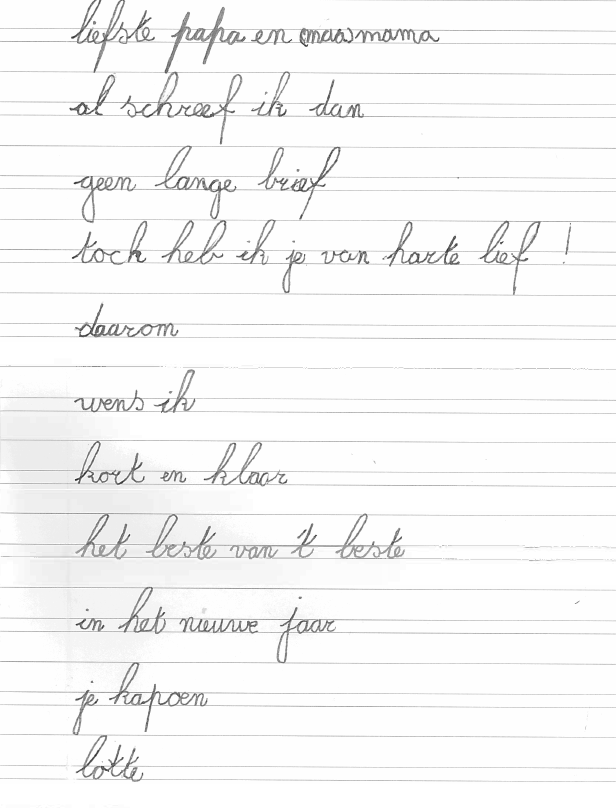 liefste papa en maamama
al schreef ik dan
geen lange brief
toch heb ik je van harte lief !
daarom
wens ik
kort en klaar
het beste van 't beste
in het nieuwe jaar
je kapoen
lotte